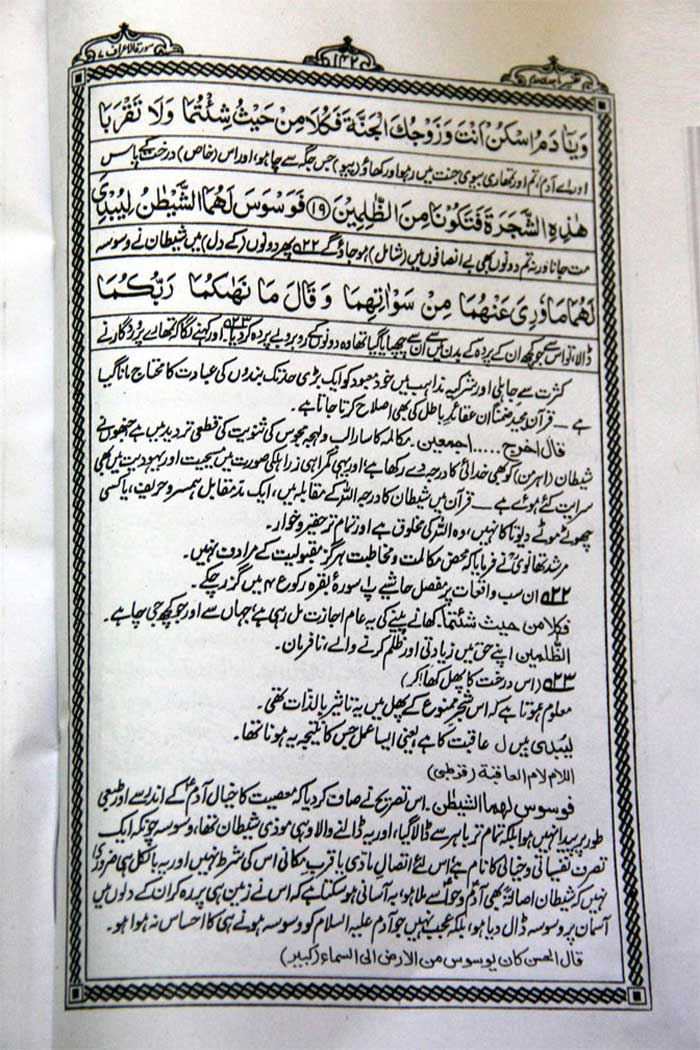 سورة الاعراف ۷
۱۴۲
تفسیر ماجدی جلد دوم
وَيٰٓاٰدَمُ اسْكُنْ اَنْتَ وَزَوْجُكَ الْجَنَّةَ فَكُلَا مِنْ حَيْثُ شِئْتُمَا وَلَا تَقْرَبَا
اور اے آدم، تم اور تمھاری بیوی جنت میں رہو اور کھاؤ (پیو) جس جگہ سے چاہو، اور اس (خاص) درخت کے پاس
هٰذِهِ الشَّجَرَةَ فَتَكُوْنَا مِنَ الظّٰلِمِيْنَ ﴿۱۹﴾ فَوَسْوَسَ لَهُمَا الشَّيْطٰنُ لِيُبْدِيَ
مت جانا ورنہ تم دونوں بھی بے انصافوں میں (شامل) ہوجاؤگے ۵۲۲ پھر دونوں (کے دل) میں شیطان نے وسوسہ
لَهُمَا مَا وٗرِيَ عَنْهُمَا مِنْ سَوْاٰتِهِمَا وَقَالَ مَا نَهٰىكُمَا رَبُّكُمَا
ڈالا، تو اس سے جو کچھ ان کے پردہ کے بدن میں سے ان سے چھپایا گیا تھا وہ دونوں کے روبرو بے پردہ کردیا ۵۲۳ اور کہنے لگا کہ تمھارے پروردگار نے
کثرت سے جاہلی اور مشرکیہ مذاہب میں خود معبود کو ایک بڑی حد تک بندوں کی عبادت کا محتاج مانا گیا
ہے ۔ قرآن مجید ضمناً ان عقائد باطل کی بھی اصلاح کرتا جاتا ہے۔
قال اخرج ..... اجمعین۔ مکالمہ کا سارا لب ولہجہ مجوس کی ثنویت کی قطعی تردید میں ہے جنھوں نے
شیطان (اہرمن) کو بھی خدائی کا درجہ دے رکھا ہے، اور یہی گمراہی ذرا ہلکی صورت میں مسیحیت اور یہودیت میں بھی
سرایت کئے ہوئے ہے ۔ قرآن میں شیطان کا درجہ اللہ کے مقابلہ میں، ایک مد مقابل ہمسر وحریف، یا کسی
چھوٹے موٹے دیوتا کا نہیں، وہ اللہ کی مخلوق ہے اور تمام تر حقیر وخوار۔
مرشد تھانویؒ نے فرمایا کہ محض مکالمت ومخاطبت ہرگز مقبولیت کے مرادف نہیں۔
۵۲۲ ان سب واقعات پر مفصل حاشیے پ۱ سورۂ بقرہ رکوع ۴ میں گزر چکے۔
فکلا من حیث شئتما۔ کھانے پینے کی یہ عام اجازت مل رہی ہے، جہاں سے اور جو کچھ جی چاہے۔
الظٰلمین اپنے حق میں زیادتی اور ظلم کرنے والے، نافرمان۔
۵۲۳ (اس درخت کا پھل کھلا کر)
معلوم ہوتا ہے کہ اس شجر ممنوع کے پھل میں یہ تاثیر بالذات تھی۔
لیبدی میں ل عاقبت کا ہے یعنی ایسا عمل جس کا نتیجہ یہ ہونا تھا۔
اللام لام العاقبة (قرطبی)
فوسوس لهما الشیطٰن۔ اس تصریح نے صاف کردیا کہ معصیت کا خیال آدمؑ کے اندر سے اور طبعی
طور پر پیدا نہیں ہوا بلکہ تمام تر باہر سے ڈالا گیا، اور یہ ڈالنے والا وہی موذی شیطان تھا، وسوسہ چونکہ ایک
تصرف نفسیاتی وخیالی کا نام ہے، اس لئے اتصال مادی یا قرب مکانی اس کی شرط نہیں اور یہ بالکل ہی ضروری
نہیں کہ شیطان اصالۃً بھی آدمؑ وحواؑ سے ملا ہو، یہ آسانی ہوسکتا ہے کہ اس نے زمین ہی پر رہ کر ان کے دلوں میں
آسمان پر وسوسہ ڈال دیا ہو، بلکہ عجب نہیں جو آدم علیہ السلام کو وسوسہ ہونے ہی کا احساس نہ ہوا ہو۔
قال الحسن کان یوسوس من الارض الی السماء (کبیر)